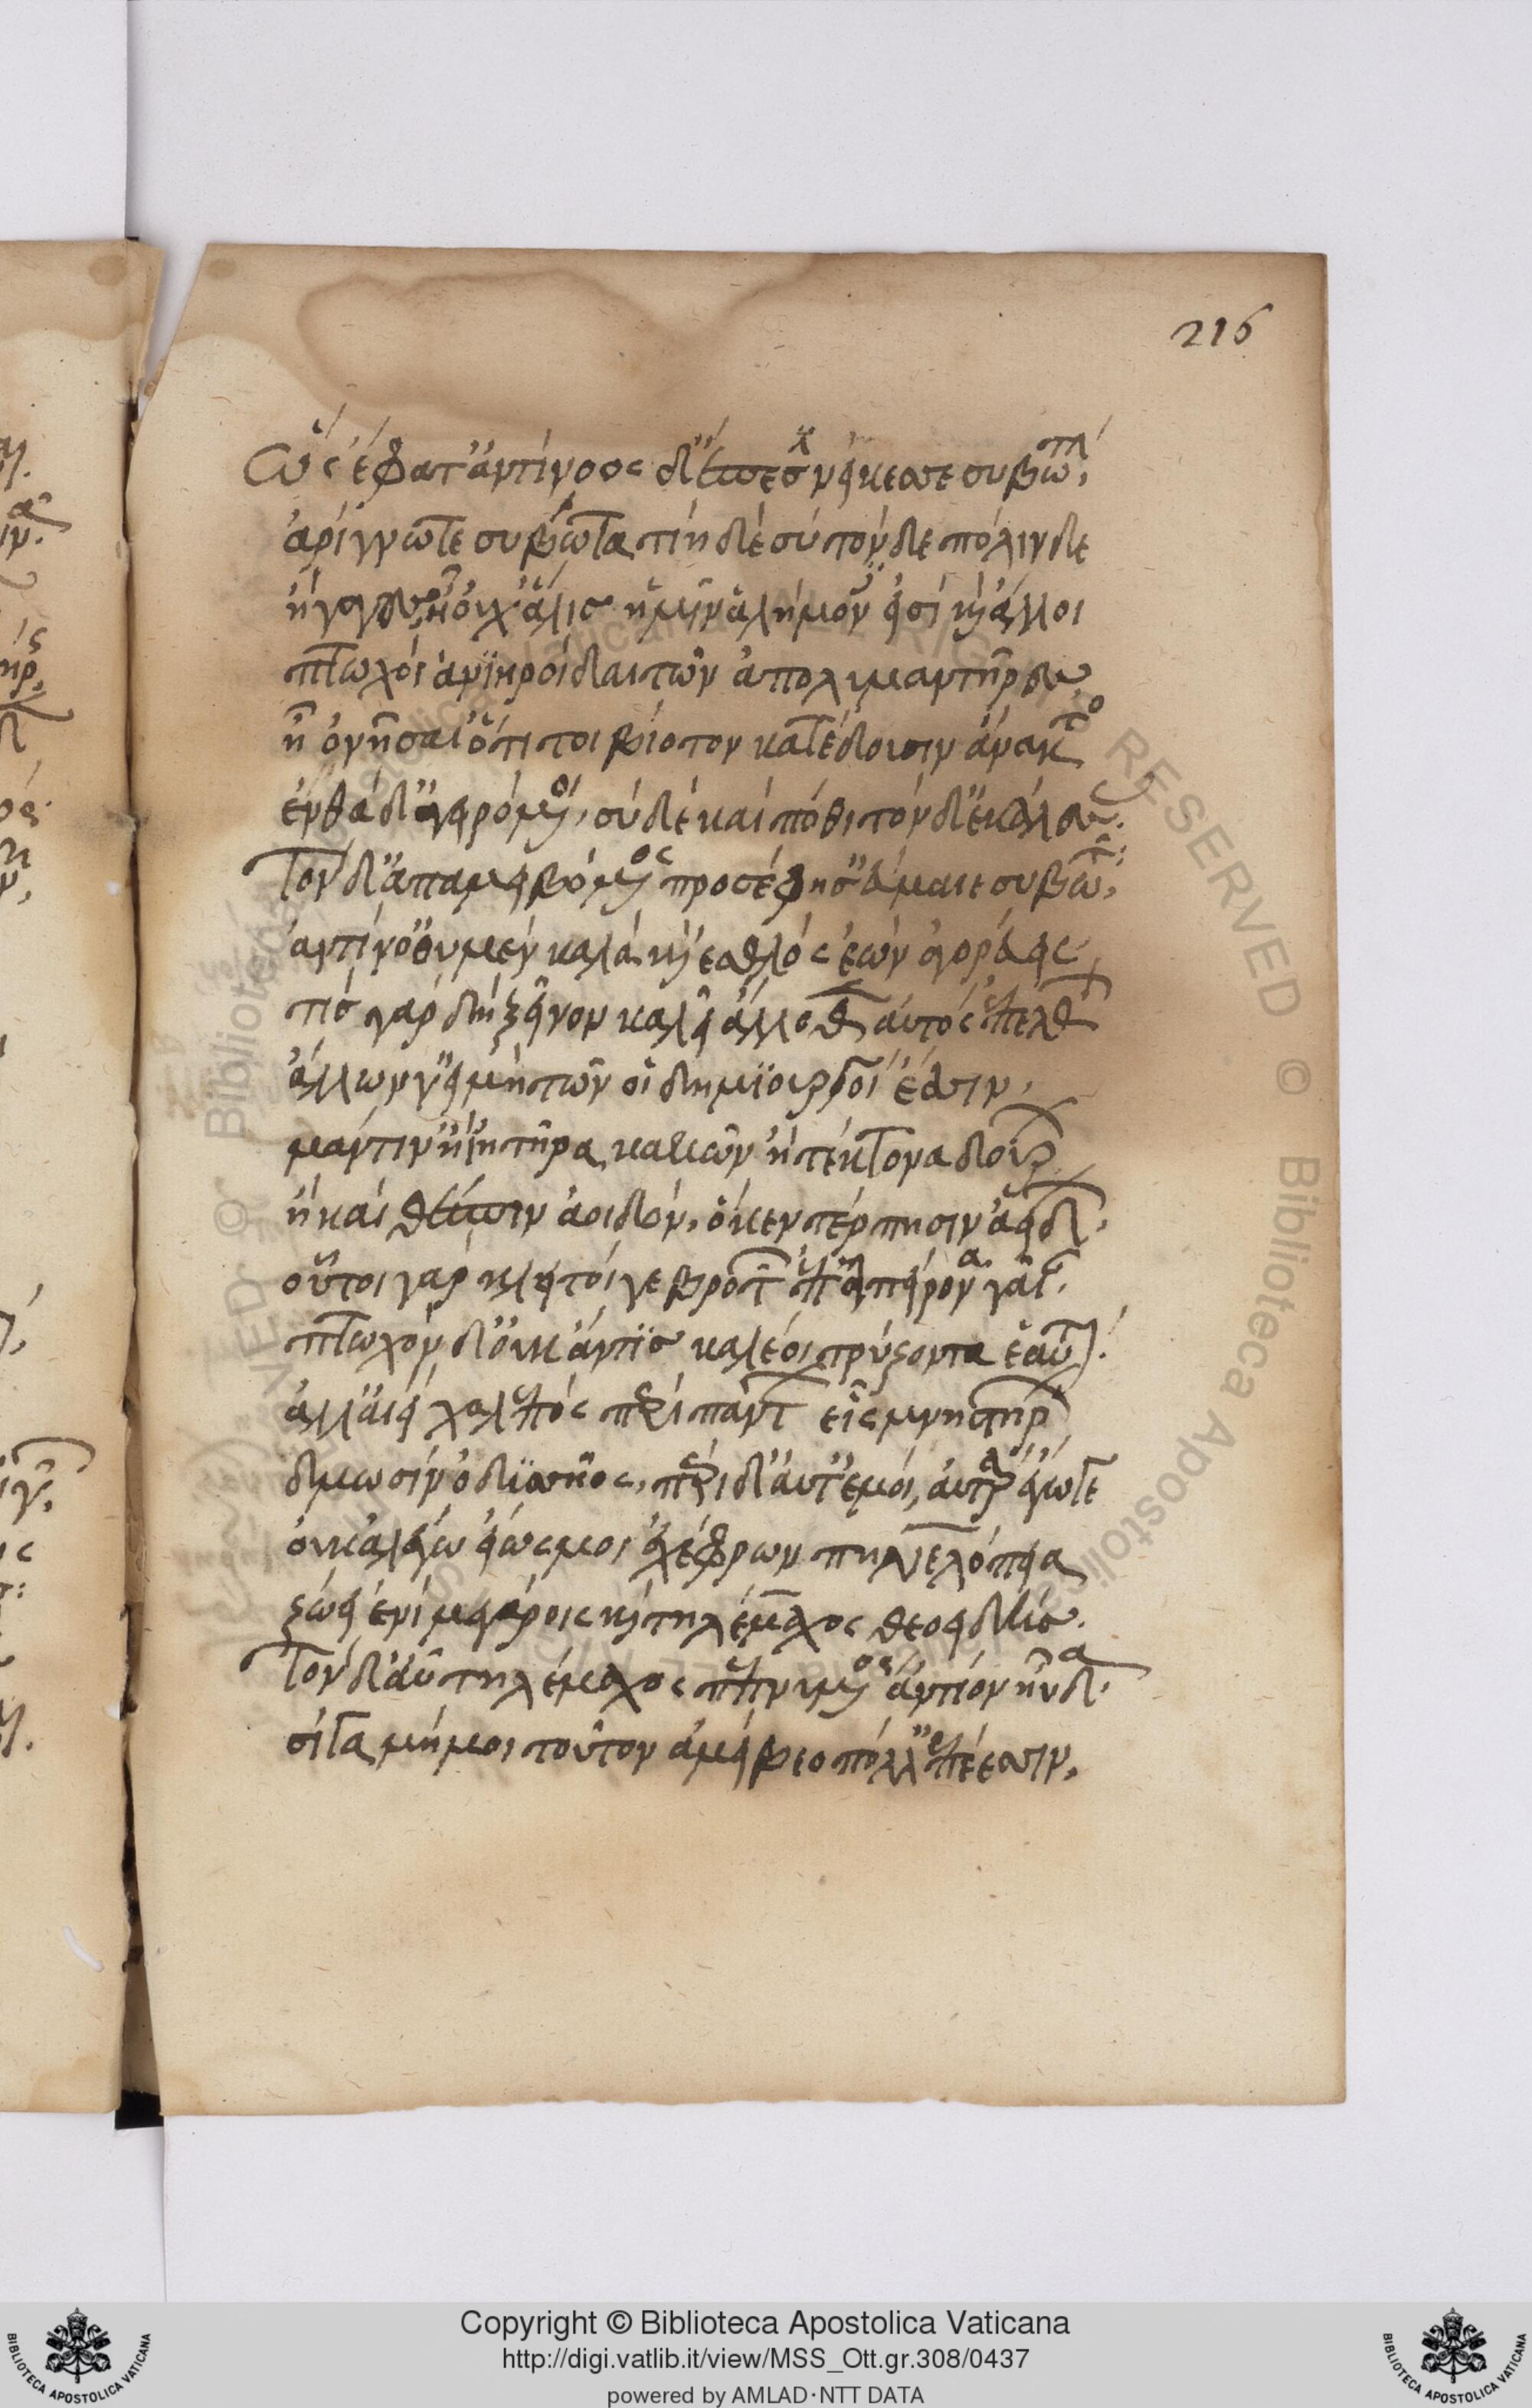 216
ὣς ἔφατ' ἀντίνοος δ' ἔπεσιν νείκεσσε συβώτην,
ἀρίγνωτε συβῶτα τίη δὲ σὺ τόνδε πόλινδε
ἤγαγες, ἦ οὐχ ἅλις ἧμιν ἀλήμονες εἰσὶ καὶ ἄλλοι
πτωχοὶ ἀνιηροὶ δαιτῶν ἀπολυμαντῆρες
ἦ ὄνησαι ὅτι τοι βίοτον κατέδουσιν ἄνακτος
ἐνθάδ' ἀγειρόμενοι, σὺ δὲ καὶ πόθι τόνδ' ἐκάλεσσας.
Τὸν δ' ἀπαμειβόμενος προσέφης εὔμαιε συβῶτα,
ἀντίνο' οὐ μὲν καλὰ καὶ ἐσθλὸς ἐὼν ἀγορεύεις
τίς γὰρ δὴ ξεῖνον καλεῖ ἄλλοθεν αὐτὸς ἐπελθών
ἄλλων γ' εἰ μὴ τῶν οἳ δημιουργοὶ ἔασιν,
μάντιν ἢ ἰητῆρα κακῶν ἢ τέκτονα δούρων
ἢ καὶ θέσπιν ἀοιδόν, ὅ κεν τέρπησιν ἀείδων.
οὗτοι γὰρ κλητοί γε βροτῶν ἐπ' ἀπείρονα γαῖαν.
πτωχὸν δ' οὐκ ἄν τις καλέοι τρύξοντα ἑαυτόν.
ἀλλ' αἰεὶ χαλεπὸς περὶ πάντων εἲς μνηστήρων
δμωσὶν ὀδυσσῆος, περὶ δ' αὖτ' ἐμοί, αὐτὰρ ἔγωγε
οὐκ ἀλέγω εἵως μοι ἐχέφρων πηνελόπεια
ζώει ἐνὶ μεγάροις καὶ τηλέμαχος θεοειδής.
Τὸν δ' αὖ τηλέμαχος πεπνυμένος ἀντίον ηὔδα.
σίγα μή μοι τοῦτον ἀμείβεο πόλλ' ἐπέεσσιν,
Copyright © Biblioteca Apostolica Vaticana
http://digi.vatlib.it/view/MSS_Ott.gr.308/0437
powered by AMLAD·NTT DATA